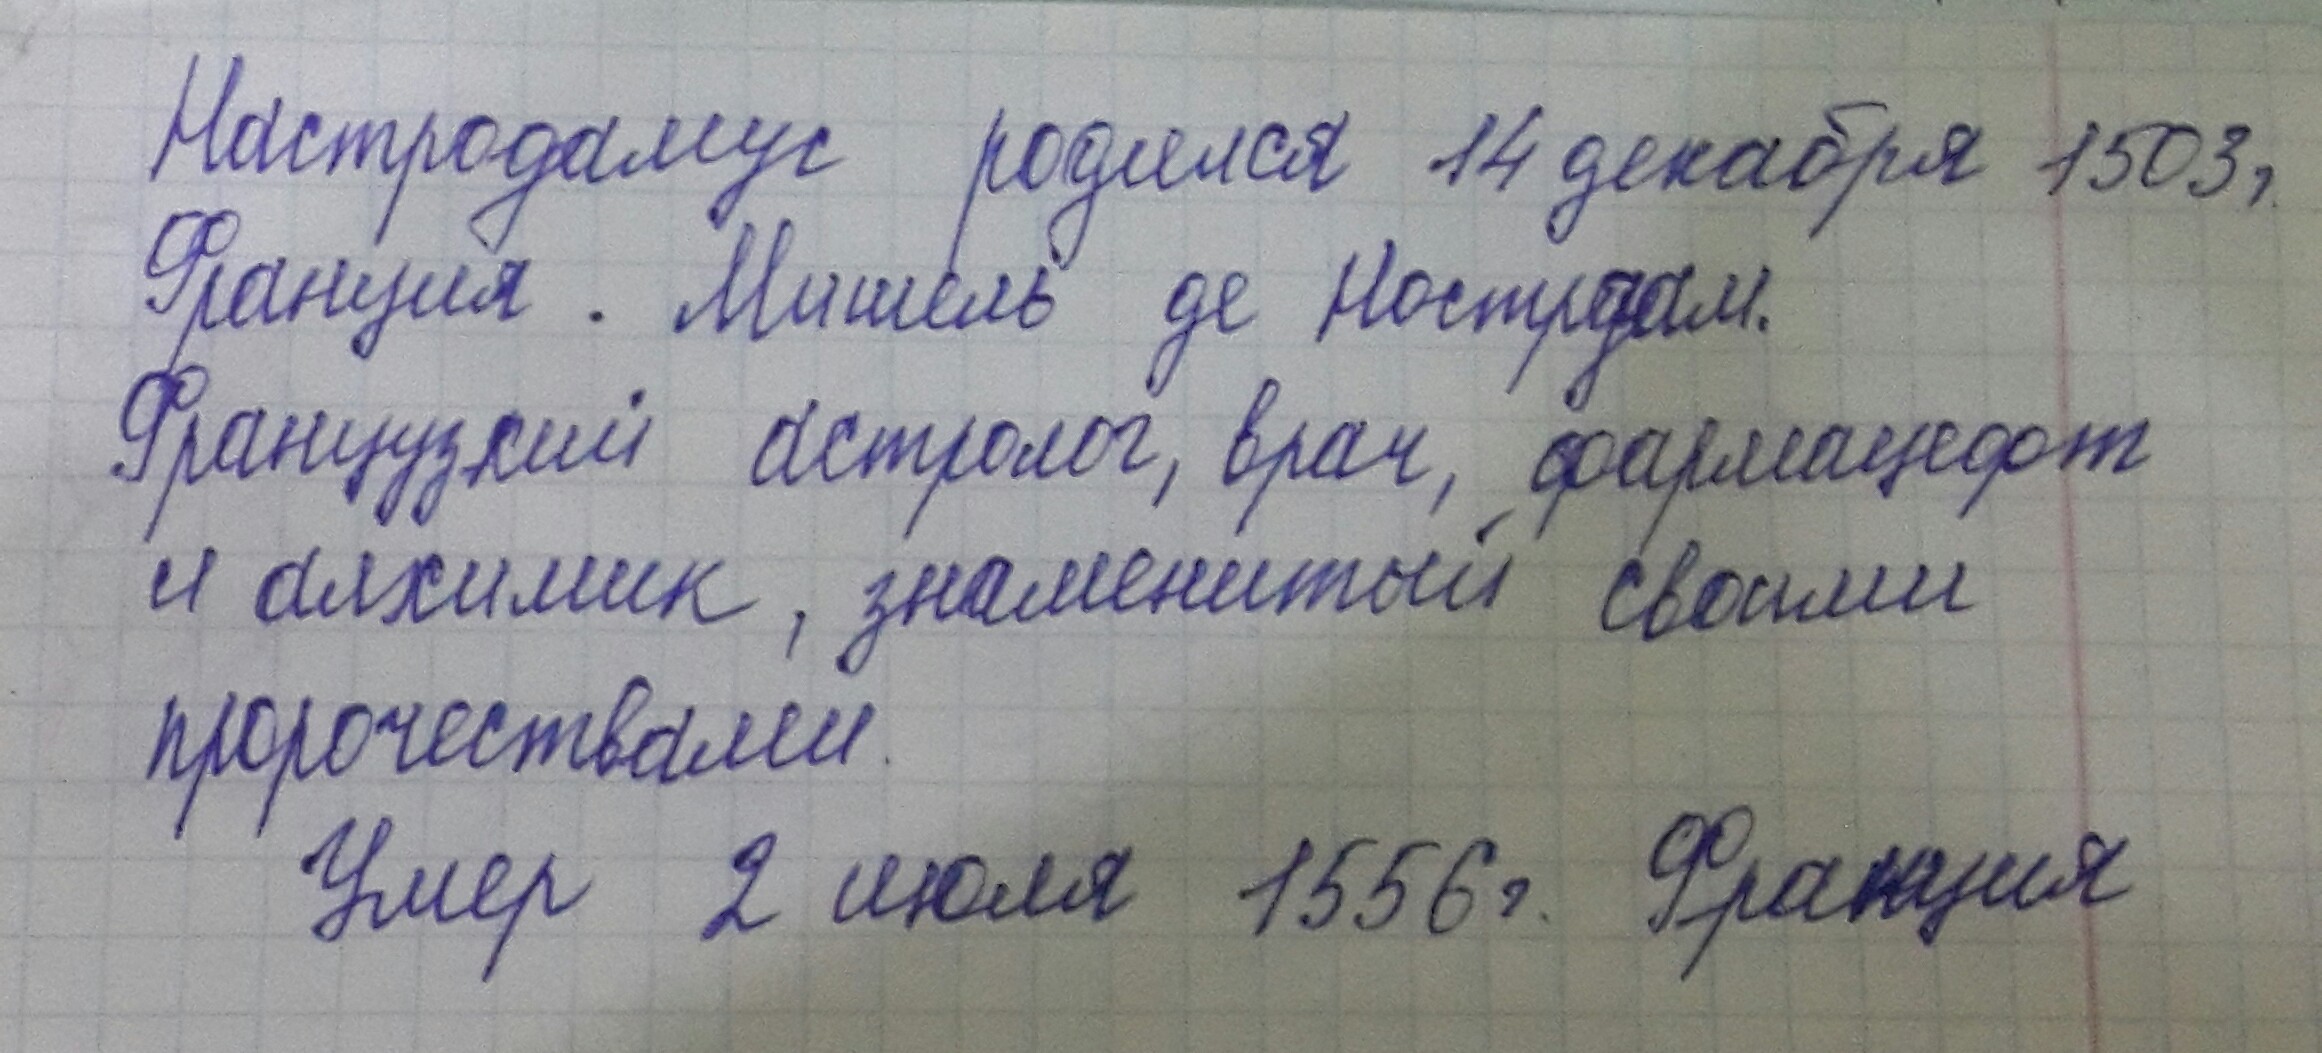 Настродамус родился 14 декабря 1503г.
Франция. Мишель де Нострдам.
Французкий астролог, врач, фармацефт
и алхимик, знаменитый своими
пророчествами.
Умер 2 июля 1556г. Франция